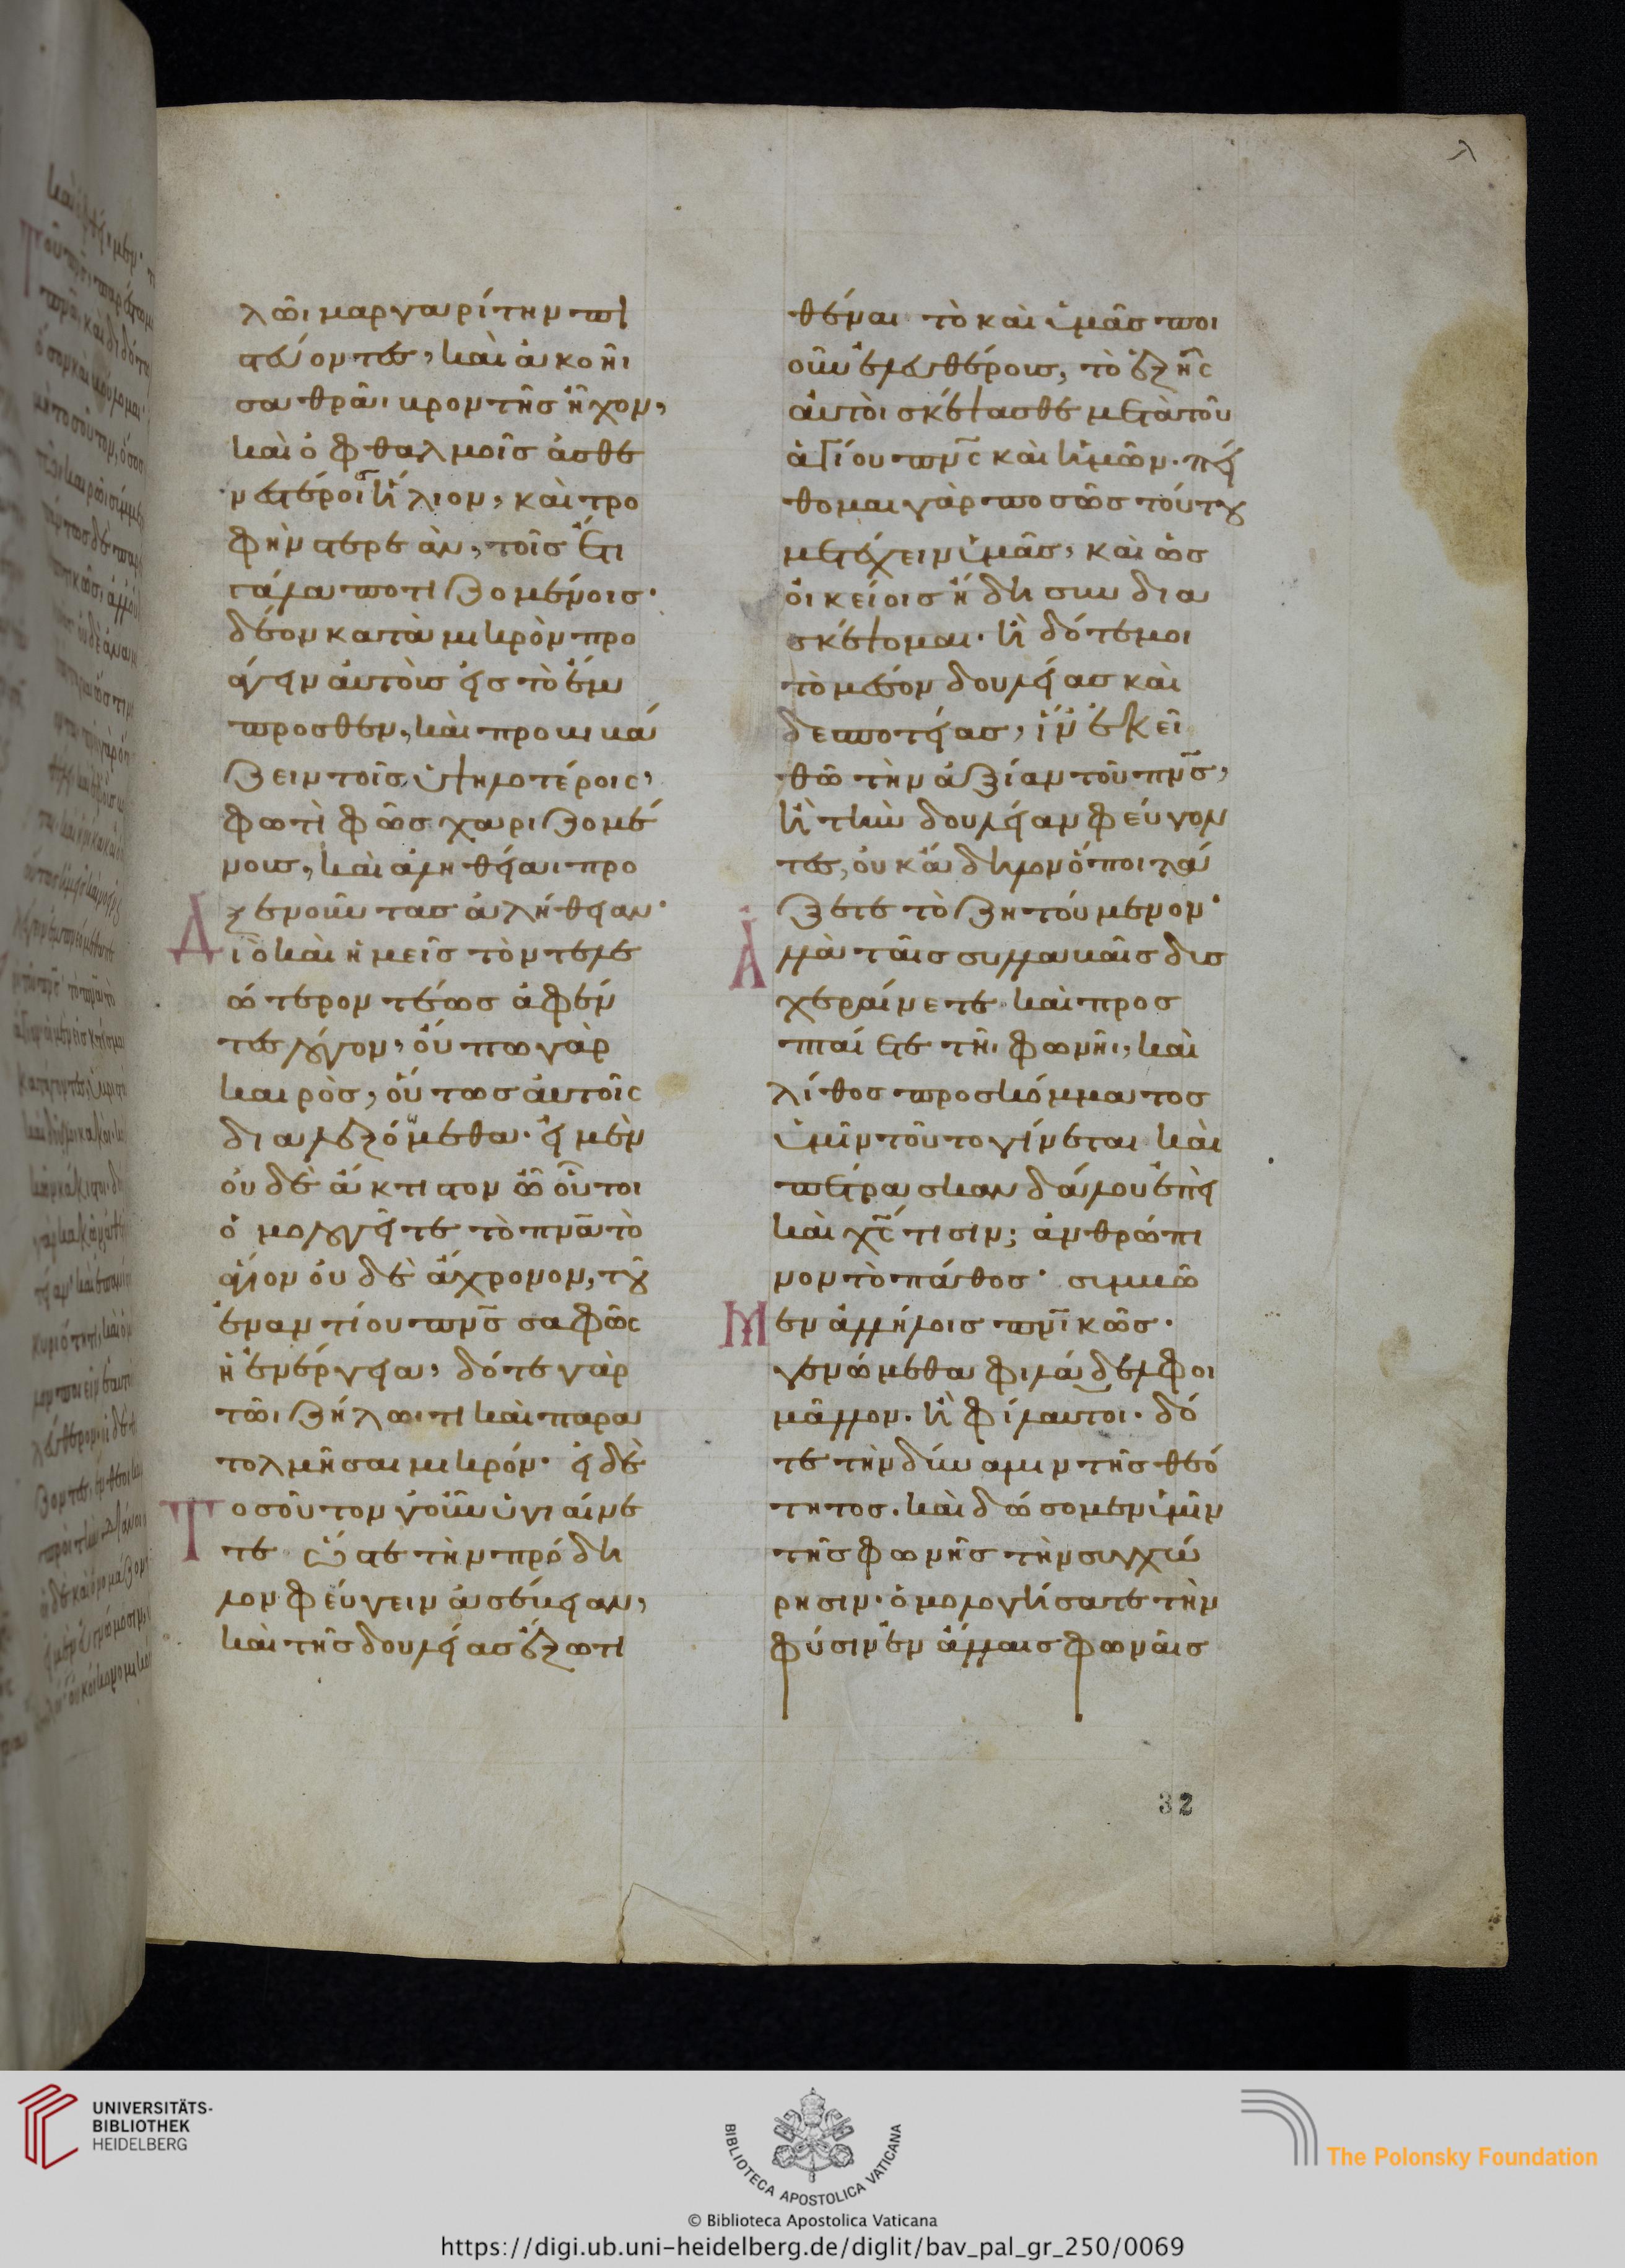 λ
λῶι μαργαρίτην πι
στεύοντες, καὶ ἀκοῆι
σαθρᾶι βροντῆς ἦχον,
καὶ ὀφθαλμοῖς ἀσθε
νεστέροις ἥλιον, καὶ τρο
φὴν στερεὰν, τοῖς ἔτι
γάλα ποτιζομένοις·
δέον κατὰ μικρὸν προ
άγειν αὐτοὺς εἰς τὸ ἔμ
προσθεν, καὶ προβιβά
ζειν τοῖς ὑψηλοτέροις,
φωτὶ φῶς χαριζομέ
νους, καὶ ἀληθείαι προ
ξενοῦντας ἀλήθειαν·
Διὸ καὶ ἡμεῖς τὸν τελε
ώτερον τέως ἀφέν
τες λόγον, οὔπω γὰρ
καιρὸς, οὕτως αὐτοῖς
διαλεξόμεθα· εἰ μὲν
οὐδὲ ἄκτιστον ὦ οὗτοι
ὁμολογεῖτε τὸ πνα τὸ
ἅγιον οὐδὲ ἄχρονον, τοῦ
ἐναντίου πνς σαφῶς
ἡ ἐνέργεια, δότε γὰρ
τῶι ζήλωι τι καὶ παρα
τολμῆσαι μικρόν· εἰ δὲ
Τοσοῦτον γοῦν ὑγιαίνε
τε ὥστε τὴν πρόδη
λον φεύγειν ἀσέβειαν,
καὶ τῆς δουλείας ἔξω τι
θέναι τὸ καὶ ὑμᾶς ποι
οῦν ἐλευθέρους, τὸ ἑξῆς
αὐτοὶ σκέψασθε μετὰ τοῦ
ἁγίου πνς καὶ ἡμῶν· πεί
θομαι γὰρ ποσῶς τούτου
μετέχειν ὑμᾶς, καὶ ὡς
οἰκείοις ἤδη συνδια
σκέψομαι· ἢ δότε μοι
τὸ μέσον δουλείας καὶ
δεσποτείας, ἵν ἐκεῖ
θῶ τὴν ἀξίαν τοῦ πνς,
ἢ τὴν δουλείαν φεύγον
τες, οὐκ ἄδηλον ὅποι τά
ξετε τὸ ζητούμενον·
Ἀλλὰ ταῖς συλλαβαῖς δυσ
χεραίνετε καὶ προσ
πταίετε τῆι φωνῆι, καὶ
λίθος προσκόμματος
ὑμῖν τοῦτο γίνεται καὶ
πέτρα σκανδάλου ἐπεὶ
καὶ χς τισιν; ἀνθρώπι
νον τὸ πάθος· συμβῶ
Μεν ἀλλήλοις πνικῶς·
γενώμεθα φιλάδελφοι
μᾶλλον· ἢ φίλαυτοι· δό
τε τὴν δύναμιν τῆς θεό
τητος· καὶ δώσομεν ὑμῖν
τῆς φωνῆς τὴν συγχώ
ρησιν· ὁμολογήσατε τὴν
φύσιν ἐν ἄλλαις φωναῖς
32
UNIVERSITÄTS-
BIBLIOTHEK
HEIDELBERG
BIBLIOTECA APOSTOLICA VATICANA
The Polonsky Foundation
© Biblioteca Apostolica Vaticana
https://digi.ub.uni-heidelberg.de/diglit/bav_pal_gr_250/0069